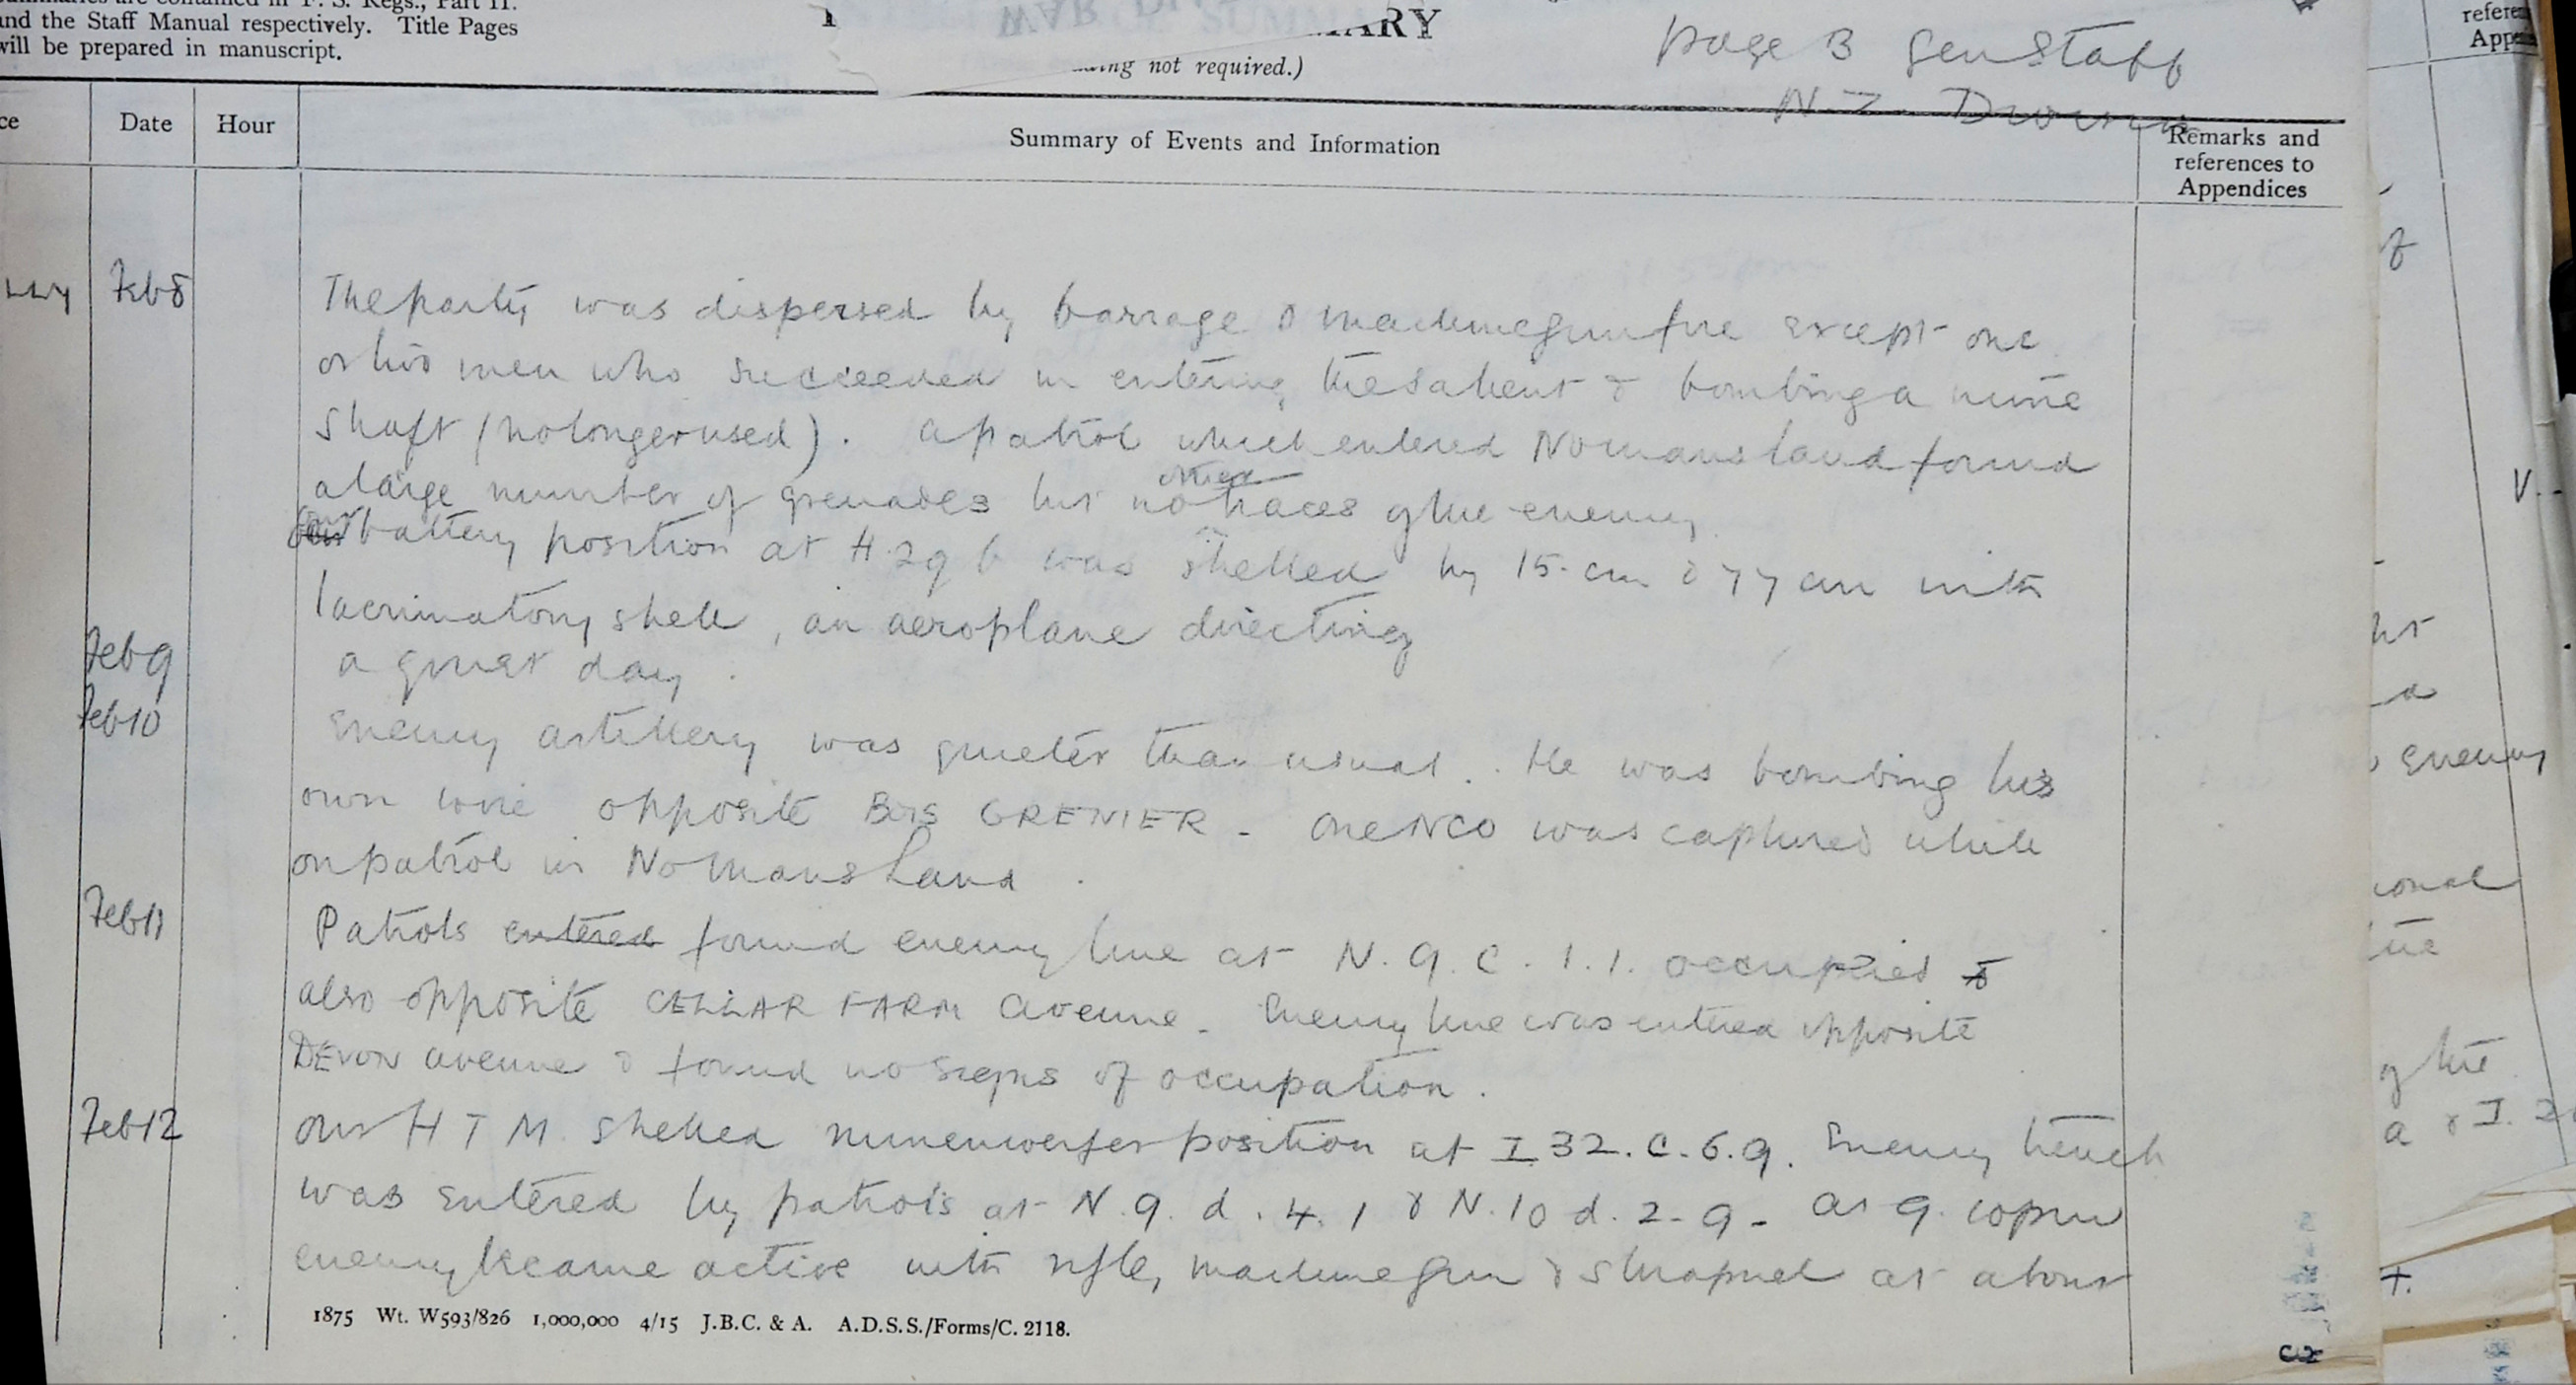 and the Staff Manual respectively. Title Pages
will be prepared in manuscript.
not required.)
page 3 Gen Staff
N Z Division
Date Hour
Summary of Events and Information
Remarks and
references to
Appendices
Feb 8 The party was dispersed by barrage & machine gun fire except one
or two men who succeeded in entering the salient & bombing a mine
shaft (no longer used). A patrol which entered No mans land found
a large number of grenades but no other traces of the enemy
Our battery position at H.29 b was shelled by 15. cm & 77 cm with
lacrimatory shell, an aeroplane directing
Feb 9 a quiet day.
Feb 10 Enemy artillery was quieter than usual. He was bombing his
own wire opposite BOIS GRENIER - One NCO was captured while
on patrol in No Mans Land.
Feb 11 Patrols entered found enemy line at N.9.c.1.1. occupied &
also opposite CELLAR FARM avenue - Enemy line was entered opposite
DEVON avenue & found no signs of occupation.
Feb 12 Our H T M shelled minenwerfer position at I 32.c.6.9. Enemy trench
was entered by patrols at N.9.d.4.1 & N.10 d.2-9- At 9.10pm
enemy became active with rifle, machine gun & shrapnel at about
1875 Wt. W593/826 1,000,000 4/15 J.B.C. & A. A.D.S.S./Forms/C. 2118.